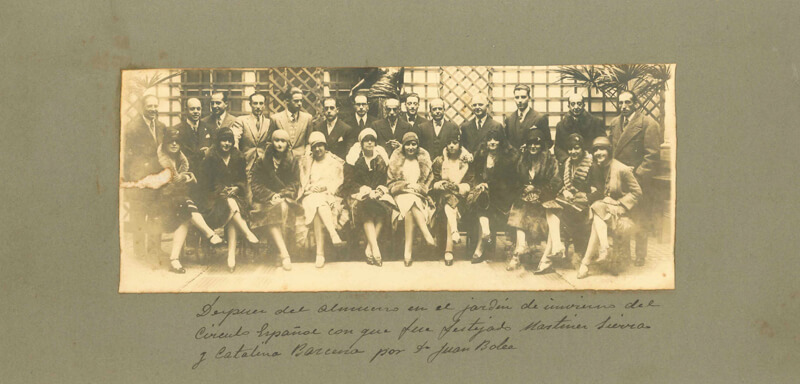 Despues del Almuerzo en el jardín de invierno del
Circulo Español con que fue festejado Martinez Sierra
y Catalina Barcena por Dr Juan